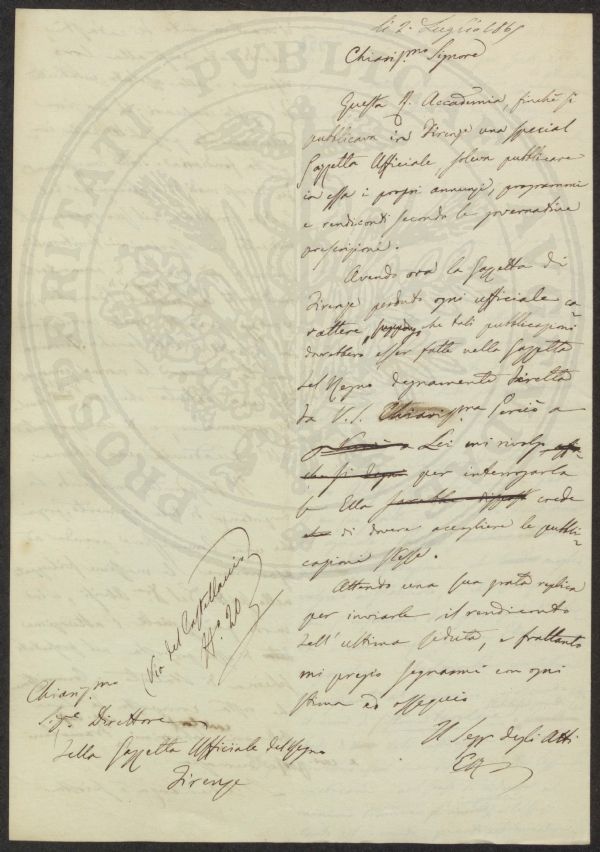 li 2. Luglio 1865
Chiariss.mo Signore
Questa R. Accademia, finchè si
pubblicava in Firenze una special
Gazzetta Ufficiale, soleva pubblicare
in essa i propri annunzi, programmi
e rendiconti secondo le governative
prescrizioni.
Avendo ora la Gazzetta di
Firenze perduto ogni ufficiale ca-
rattere, suppongo che tali pubblicazioni
dovrebbero esser fatte nella Gazzetta
del Regno degnamente diretta
da V. S. Chiariss.ma Perciò a
Lei mi rivolgo
che si degni per interrogarla
se Ella sarebbe disposta crede
di dovere accogliere le pubbli-
cazioni stesse.
Attendo una sua grata replica
per inviarle il rendiconto
dell'ultima seduta, e frattanto
mi pregio segnarmi con ogni
stima ed ossequio
Il Segr. degli Atti
(Via del Castellaccio
N.o 20)
Chiariss.mo
Sig.re Direttore
della Gazzetta Ufficiale del Regno
Firenze
PROSPERITATI PUBLICAE AUGENDAE